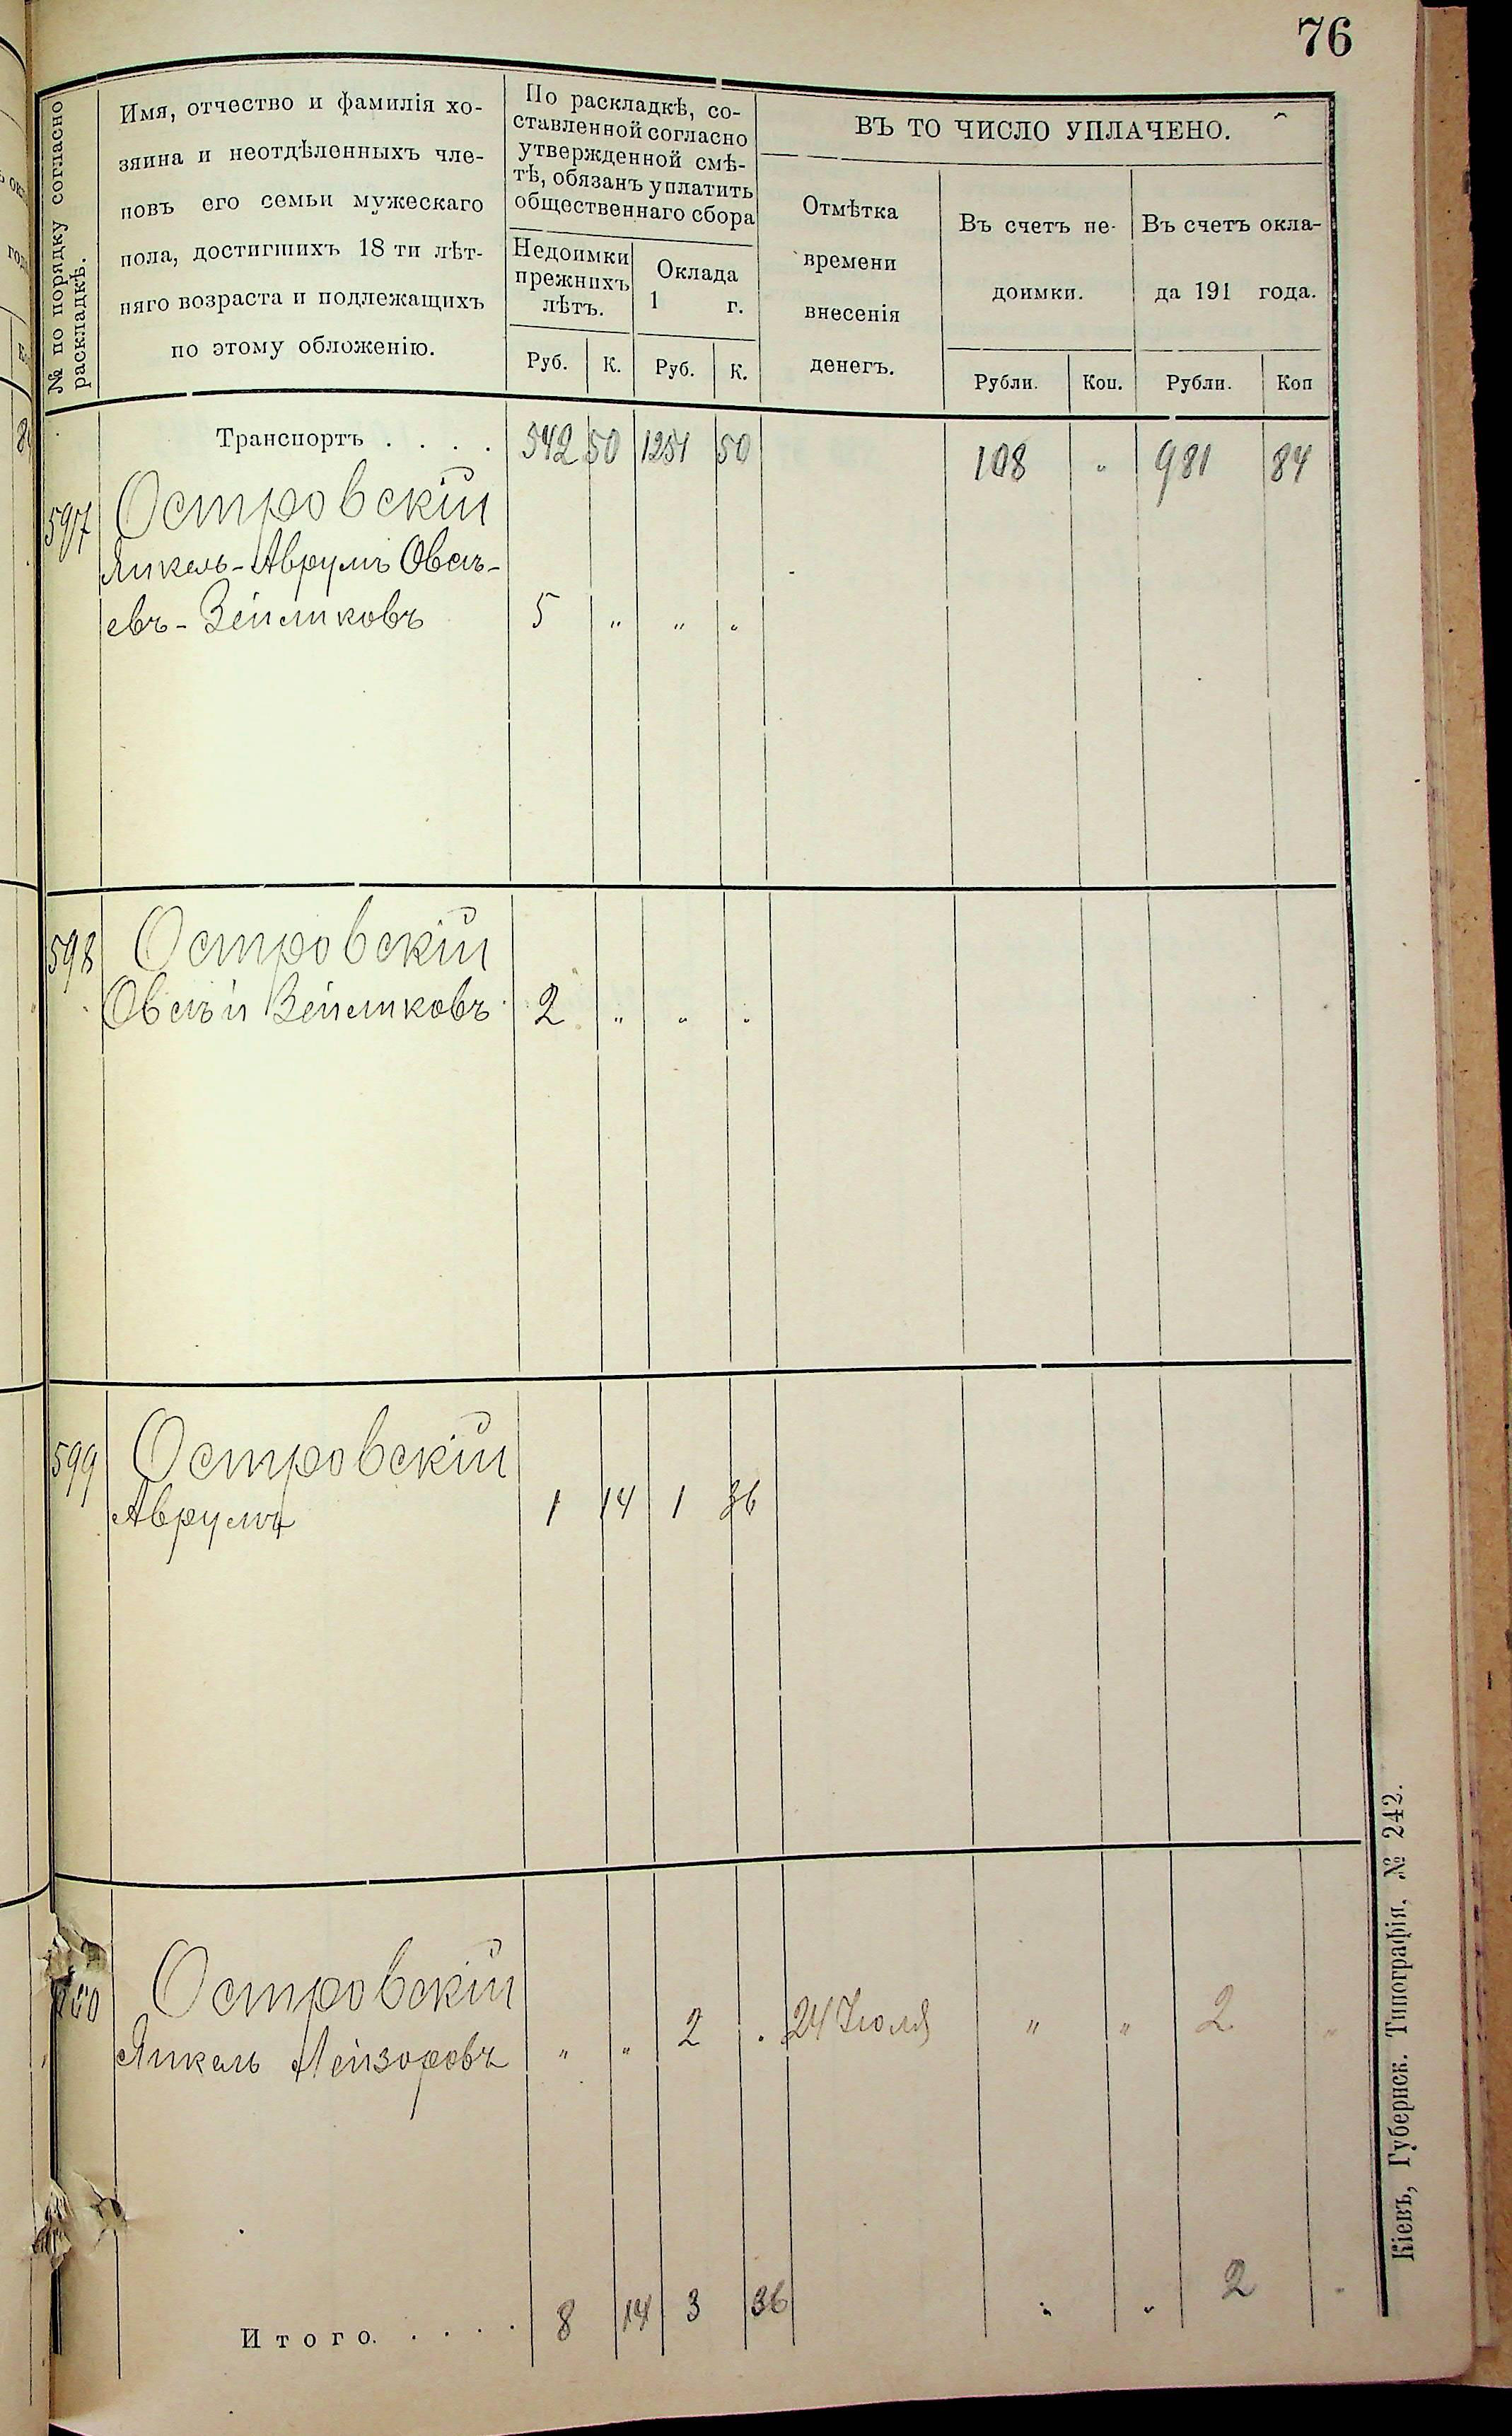 76
№ по порядку согласно
раскладкѣ.
Имя, отчество и фамилія хо-
зяина и неотдѣленныхъ чле-
новъ его семьи мужескаго
пола, достигшихъ 18 ти лѣт-
няго возраста и подлежащихъ
по этому обложенію.
По раскладкѣ, со-
ставленной согласно
утвержденной смѣ-
тѣ, обязанъ уплатить
общественнаго сбора
Недоимки
прежнихъ
лѣтъ.
Оклада
1 г.
Руб. К. Руб. К.
ВЪ ТО ЧИСЛО УПЛАЧЕНО.
Отмѣтка
времени
внесенія
денегъ.
Въ счетъ не-
доимки.
Въ счетъ окла-
да 191 года.
Рубли. Коп. Рубли. Коп
Транспортъ . . . . 542 50 1251 50 108 „ 981 84
597 Островскій
Янкель-Аврумъ Овсъ-
евъ-Зейликовъ 5 „ „ „
598 Островскій
Овсѣй Зейликовъ 2 „ „ „
599 Островскій
Аврумъ 1 14 1 36
Островскій
Янкель Лейзоровъ „ „ 2 . 24 Іюля „ „ 2 „
Итого. . . . . 8 14 3 36 „ „ 2 „
Кіевъ, Губернск. Типографія, № 242.